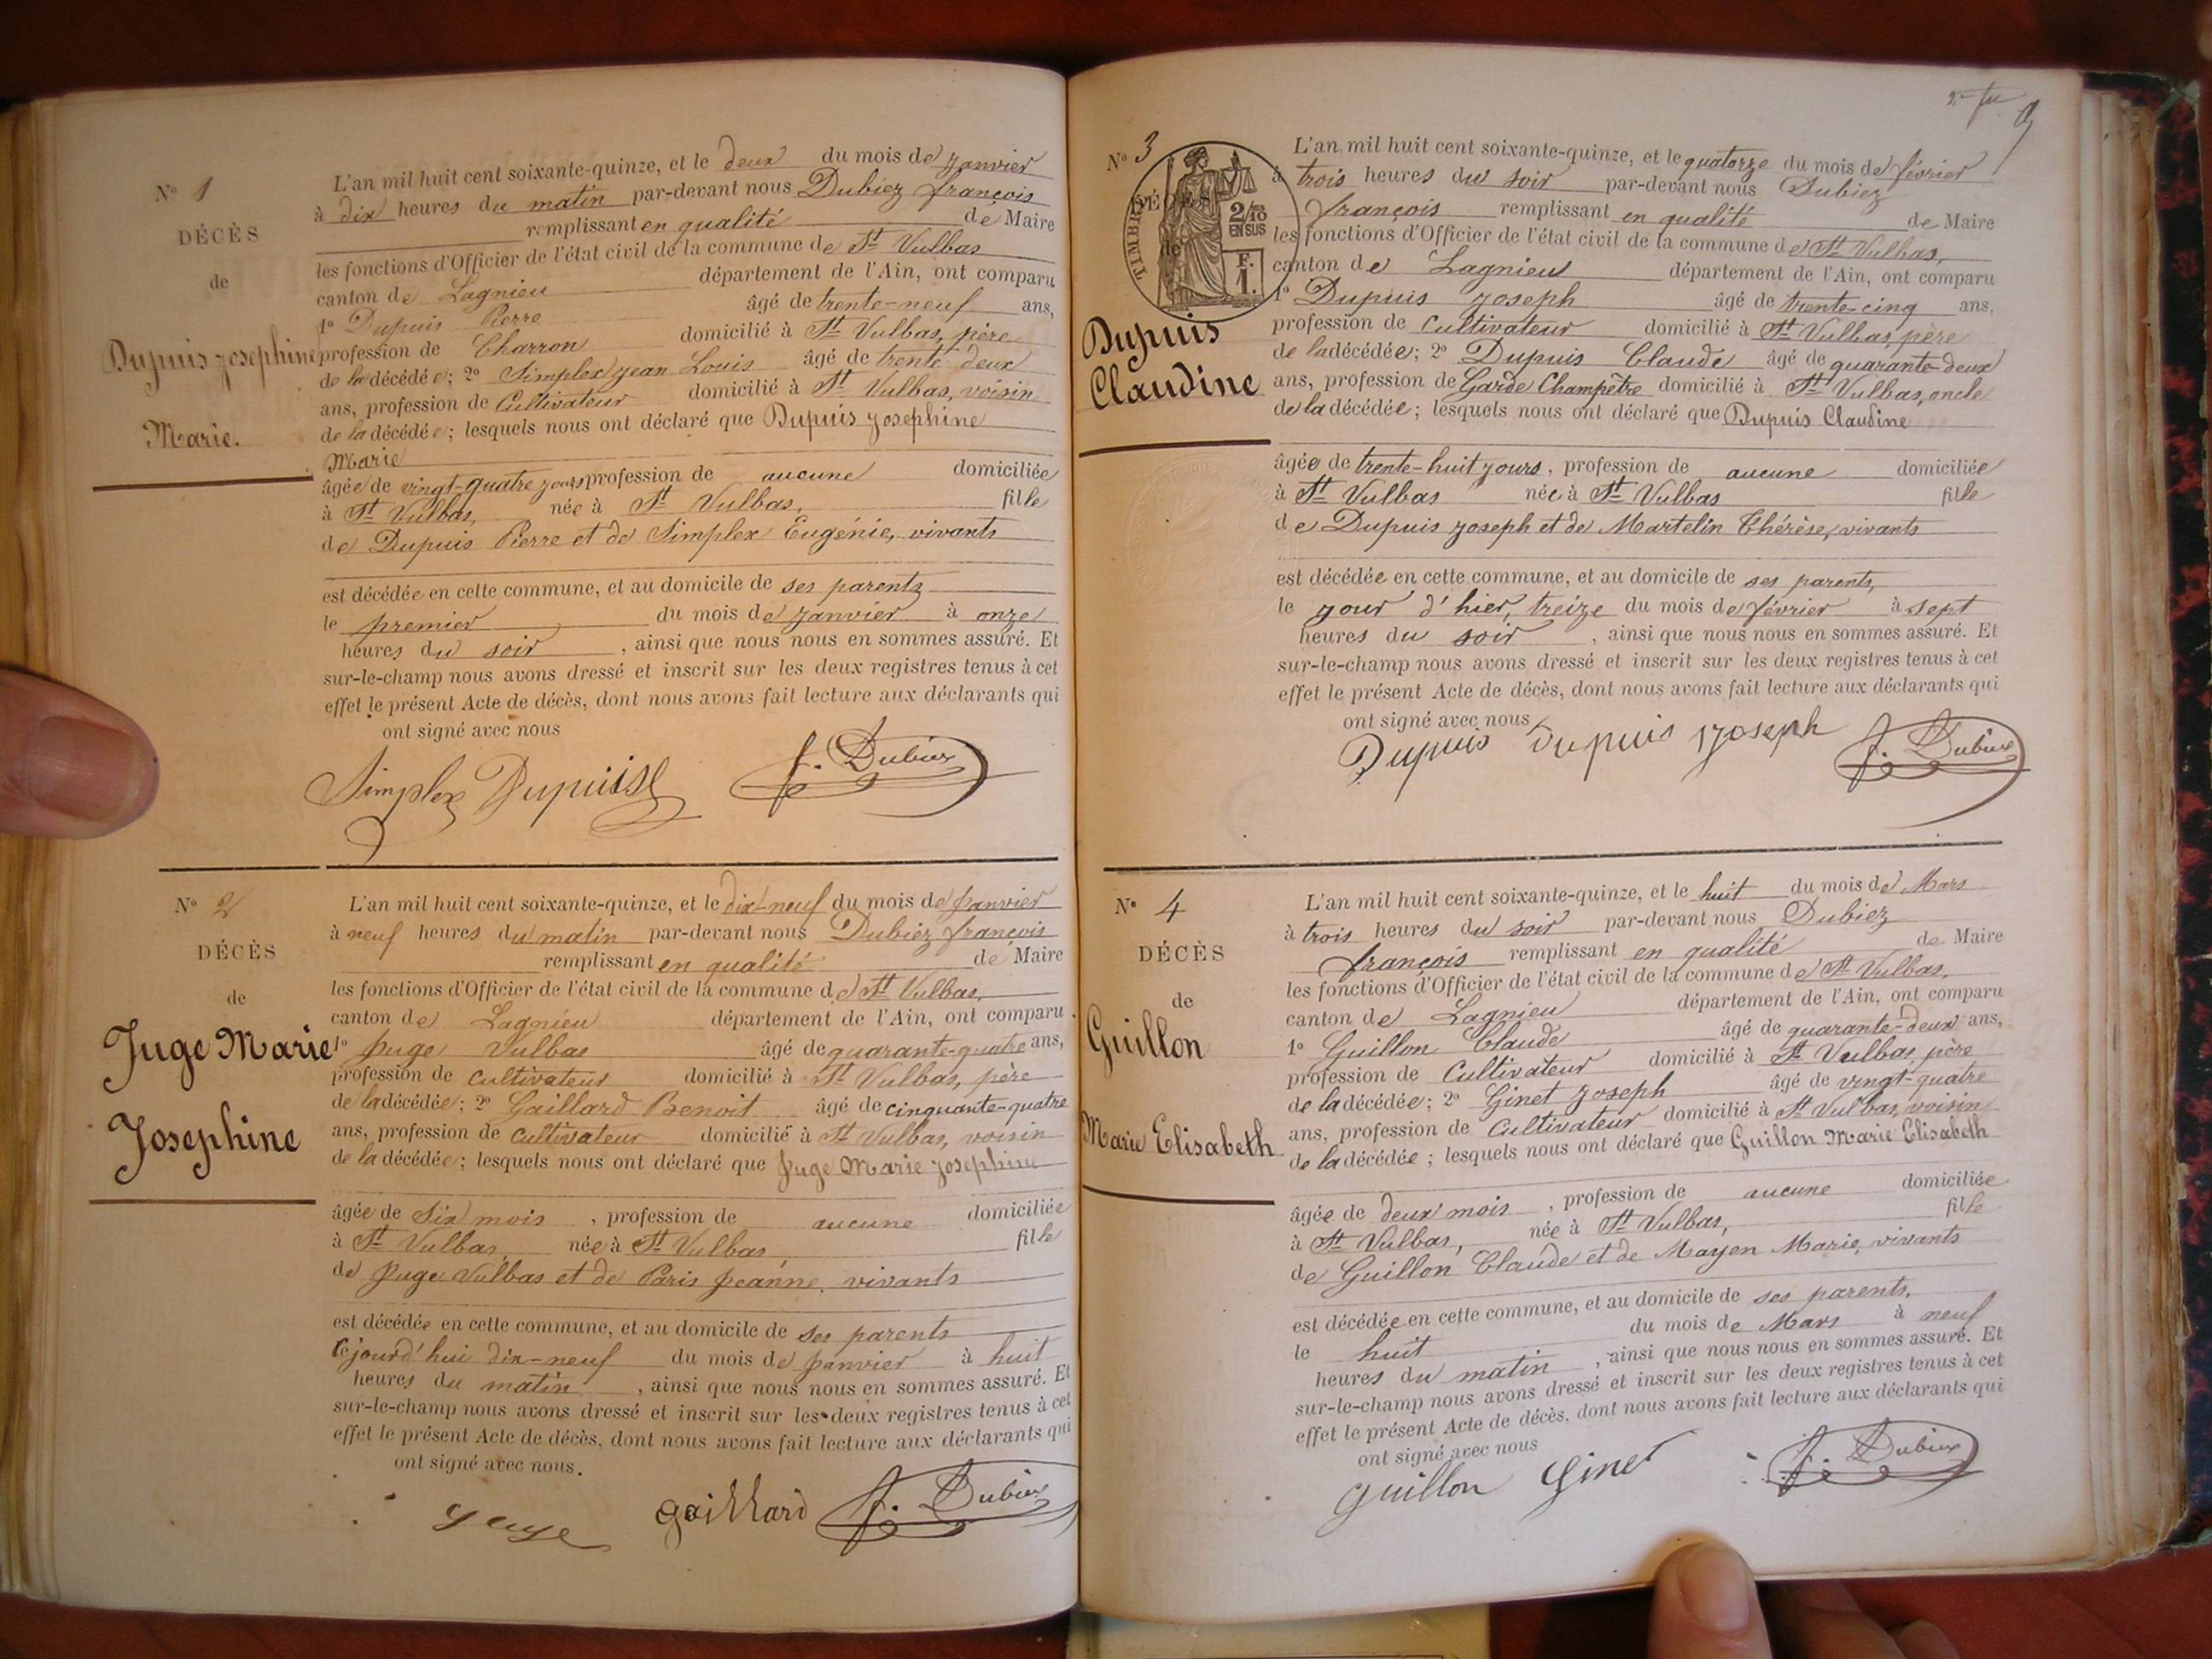 N° 1
DÉCÈS
de
Dupuis Josephine
Marie.
L'an mil huit cent soixante-quinze, et le deux du mois de Janvier
à dix heures du matin par-devant nous Dubiez françois
remplissant en qualité de Maire
les fonctions d'Officier de l'état civil de la commune de St Vulbas
canton de Lagnieu département de l'Ain, ont comparu
1° Dupuis Pierre âgé de trente-neuf ans,
profession de Charron domicilié à St Vulbas, père
de la décédée; 2° Simplex Jean Louis âgé de trente deux
ans, profession de Cultivateur domicilié à St Vulbas, voisin
de la décédée; lesquels nous ont déclaré que Dupuis Josephine
Marie
âgée de vingt-quatre jours profession de aucune domiciliée
à St Vulbas, née à St Vulbas, fille
de Dupuis Pierre et de Simplex Eugénie, vivants
est décédée en cette commune, et au domicile de ses parents
le premier du mois de Janvier à onze
heures du soir, ainsi que nous nous en sommes assuré. Et
sur-le-champ nous avons dressé et inscrit sur les deux registres tenus à cet
effet le présent Acte de décès, dont nous avons fait lecture aux déclarants qui
ont signé avec nous
Simplex Dupuis F. Dubiez
N° 2
DÉCÈS
de
Juge Marie
Josephine
L'an mil huit cent soixante-quinze, et le dix-neuf du mois de Janvier
à neuf heures du matin par-devant nous Dubiez françois
remplissant en qualité de Maire
les fonctions d'Officier de l'état civil de la commune de St Vulbas,
canton de Lagnieu département de l'Ain, ont comparu
1° Juge Vulbas âgé de quarante-quatre ans,
profession de cultivateur domicilié à St Vulbas, père
de la décédée; 2° Gaillard Benoit âgé de cinquante-quatre
ans, profession de cultivateur domicilié à St Vulbas, voisin
de la décédée; lesquels nous ont déclaré que Juge Marie Josephine
âgée de Six mois, profession de aucune domiciliée
à St Vulbas, née à St Vulbas, fille
de Juge Vulbas et de Paris Jeanne, vivants
est décédée en cette commune, et au domicile de ses parents
cejourd'hui dix-neuf du mois de Janvier à huit
heures du matin, ainsi que nous nous en sommes assuré. Et
sur-le-champ nous avons dressé et inscrit sur les deux registres tenus à cet
effet le présent Acte de décès, dont nous avons fait lecture aux déclarants qui
ont signé avec nous.
Juge gaillard F. Dubiez
9
N° 3
DÉCÈS
de
TIMBRE
2/10
EN SUS
F.
1.
Dupuis
Claudine
L'an mil huit cent soixante-quinze, et le quatorze du mois de février
à trois heures du soir par-devant nous Dubiez
françois remplissant en qualité de Maire
les fonctions d'Officier de l'état civil de la commune de St Vulbas,
canton de Lagnieu département de l'Ain, ont comparu
1° Dupuis Joseph âgé de trente-cinq ans,
profession de Cultivateur domicilié à St Vulbas, père
de la décédée; 2° Dupuis Claude âgé de quarante-deux
ans, profession de Garde Champêtre domicilié à St Vulbas, oncle
de la décédée; lesquels nous ont déclaré que Dupuis Claudine
âgée de trente-huit jours, profession de aucune domiciliée
à St Vulbas née à St Vulbas fille
de Dupuis Joseph et de Martelin Thérèse, vivants
est décédée en cette commune, et au domicile de ses parents,
le jour d'hier, treize du mois de février à sept
heures du soir, ainsi que nous nous en sommes assuré. Et
sur-le-champ nous avons dressé et inscrit sur les deux registres tenus à cet
effet le présent Acte de décès, dont nous avons fait lecture aux déclarants qui
ont signé avec nous
Dupuis Dupuis Joseph F. Dubiez
N° 4
DÉCÈS
de
Guillon
Marie Elisabeth
L'an mil huit cent soixante-quinze, et le huit du mois de Mars
à trois heures du soir par-devant nous Dubiez
françois remplissant en qualité de Maire
les fonctions d'Officier de l'état civil de la commune de St Vulbas,
canton de Lagnieu département de l'Ain, ont comparu
1° Guillon Claude âgé de quarante-deux ans,
profession de Cultivateur domicilié à St Vulbas, père
de la décédée; 2° Ginet Joseph âgé de vingt-quatre
ans, profession de Cultivateur domicilié à St Vulbas, voisin
de la décédée; lesquels nous ont déclaré que Guillon Marie Elisabeth
âgée de deux mois, profession de aucune domiciliée
à St Vulbas, née à St Vulbas, fille
de Guillon Claude et de Mayen Marie, vivants
est décédée en cette commune, et au domicile de ses parents,
le huit du mois de Mars à neuf
heures du matin, ainsi que nous nous en sommes assuré. Et
sur-le-champ nous avons dressé et inscrit sur les deux registres tenus à cet
effet le présent Acte de décès, dont nous avons fait lecture aux déclarants qui
ont signé avec nous
Guillon Ginet F. Dubiez